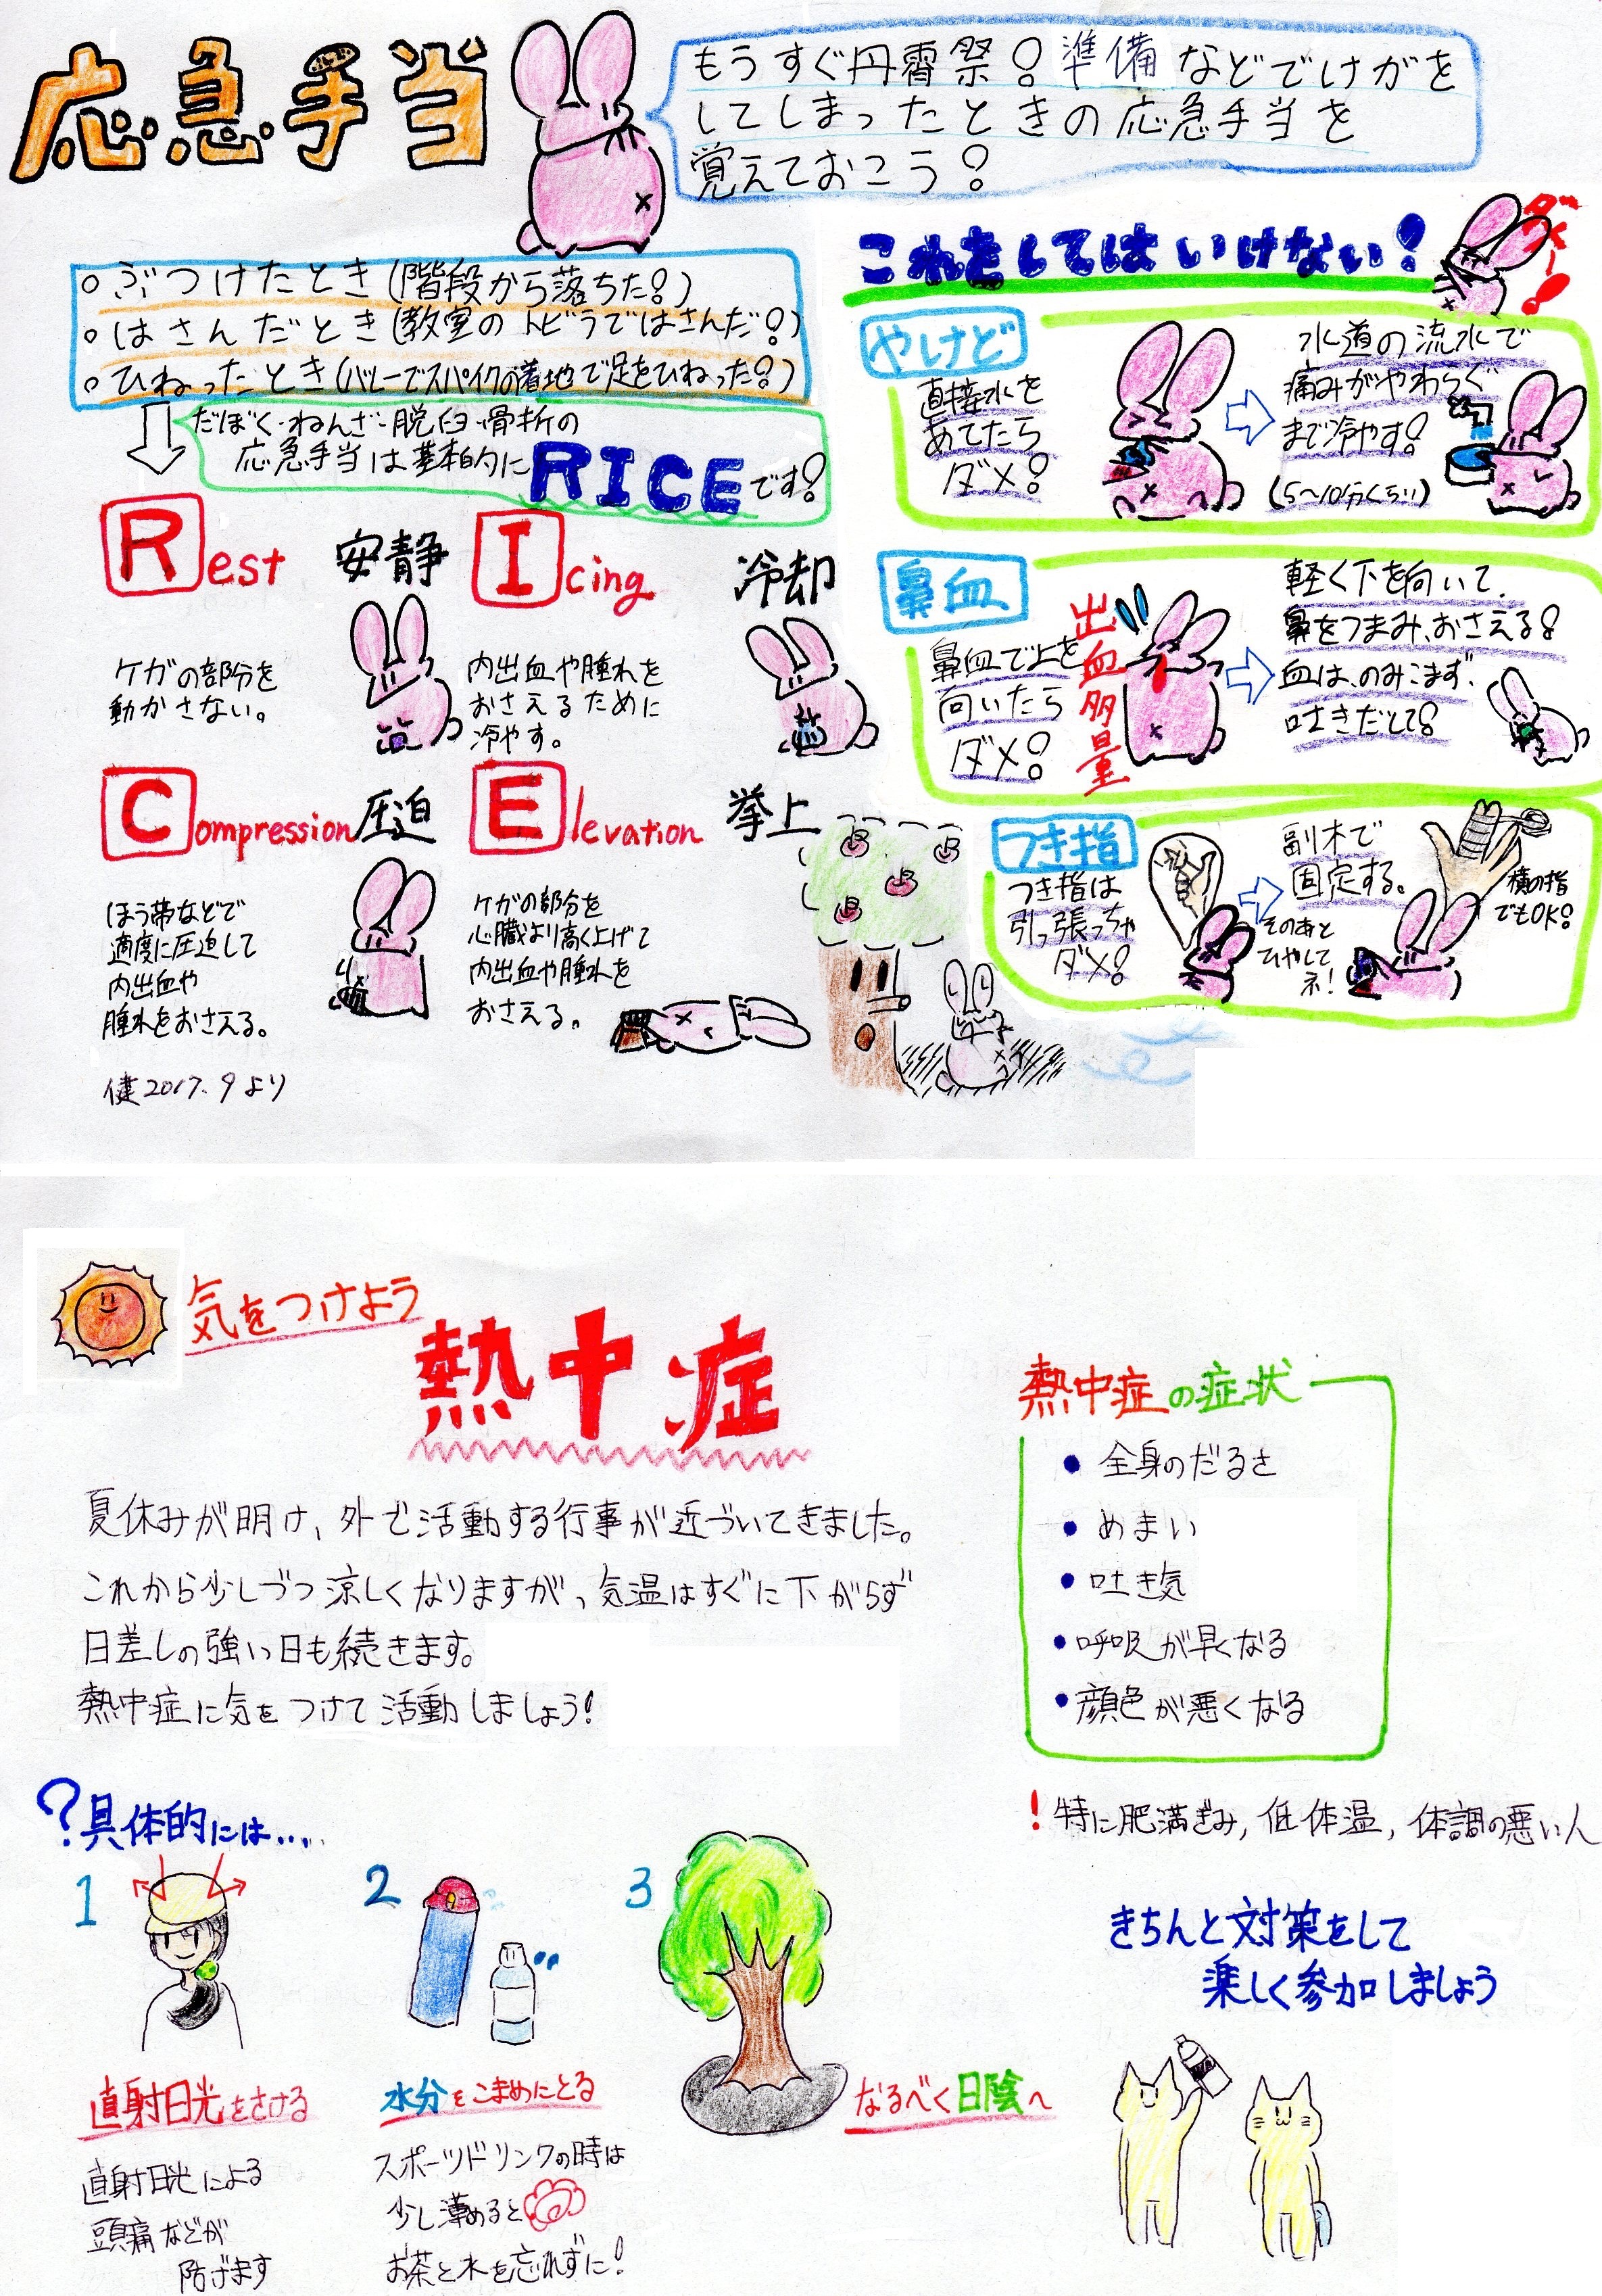 応急手当
もうすぐ丹霄祭!準備などでけがを
してしまったときの応急手当を
覚えておこう!
。ぶつけたとき(階段から落ちた!)
。はさんだとき(教室のトビラではさんだ!)
。ひねったとき(バレーでスパイクの着地で足をひねった!)
だぼく・ねんざ・脱臼・骨折の
応急手当は基本的にRICEです!
Rest 安静
ケガの部分を
動かさない。
Icing 冷却
内出血や腫れを
おさえるために
冷やす。
Compression 圧迫
ほう帯などで
適度に圧迫して
内出血や
腫れをおさえる。
Elevation 挙上
ケガの部分を
心臓より高く上げて
内出血や腫れを
おさえる。
健2017.9より
これをしてはいけない!
ダメー!
やけど
直接水を
あてたら
ダメ!
水道の流水で
痛みがやわらぐ
まで冷やす!
(5~10分くらい)
鼻血
鼻血で上を
向いたら
ダメ!
出血多量
軽く下を向いて、
鼻をつまみ、おさえる!
血は、のみこまず、
吐きだして!
つき指
つき指は
引っ張っちゃ
ダメ!
副木で
固定する。
そのあと
ひやして
ネ!
横の指
でもOK!
気をつけよう
熱中症
夏休みが明け、外で活動する行事が近づいてきました。
これから少しづつ涼しくなりますが、気温はすぐに下がらず
日差しの強い日も続きます。
熱中症に気をつけて活動しましょう!
熱中症の症状
• 全身のだるさ
• めまい
• 吐き気
• 呼吸が早くなる
• 顔色が悪くなる
! 特に肥満ぎみ,低体温,体調の悪い人
?具体的には....
1
直射日光をさける
直射日光による
頭痛などが
防げます
2
水分をこまめにとる
スポーツドリンクの時は
少し薄めると
お茶と水を忘れずに!
3
なるべく日陰へ
きちんと対策をして
楽しく参加しましょう